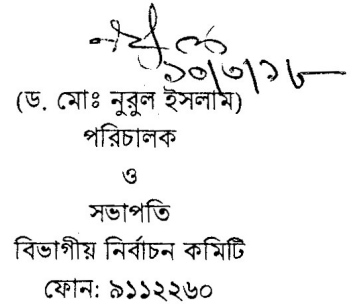 ১০/৩/১৮
(ড. মোঃ নুরুল ইসলাম)
পরিচালক
ও
সভাপতি
বিভাগীয় নির্বাচন কমিটি
ফোন: ৯১১২২৬০